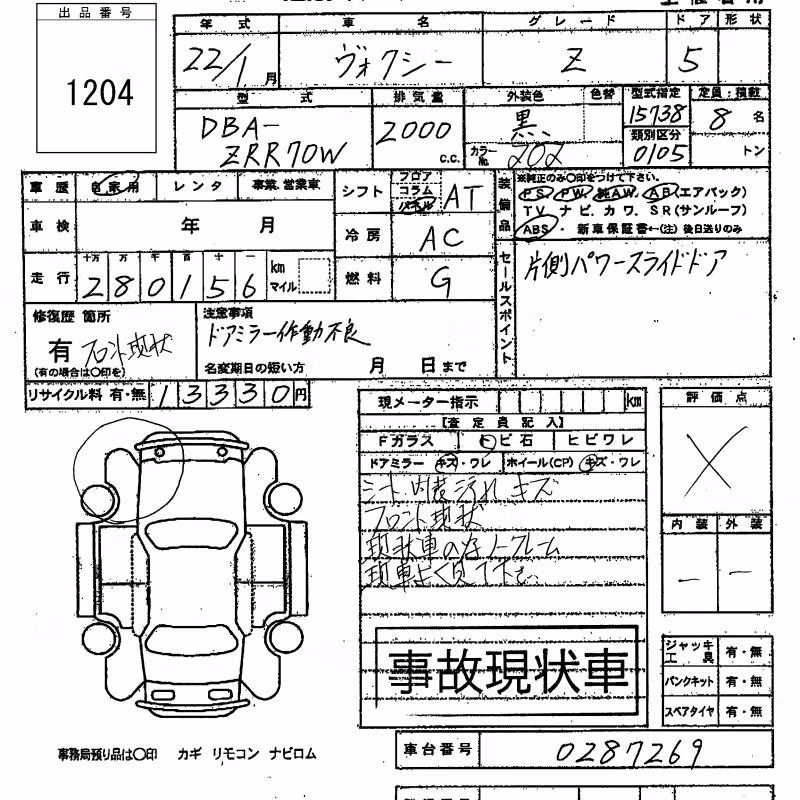 出品番号
1204
年式 車名 グレード ドア 形状
22/1月 ヴォクシー Z 5
型式 排気量 外装色 色替 型式指定 定員・積載
DBA-ZRR70W 2000 c.c. 黒 カラーNo. 202 15738 8 名
類別区分
0105 トン
車歴 自家用 レンタ 事業.営業車
シフト フロア コラム パネル AT
装備品 ※純正のみ〇印をつけて下さい。
PS. PW. 純AW. AB(エアバック)
TV. ナビ. カワ. SR(サンルーフ)
ABS・新車保証書←(注)後日送りのみ
車検 年 月
冷房 AC
走行 十万 万 千 百 十 一 km マイル
280156
燃料 G
セールスポイント
片側パワースライドドア
修復歴 箇所
有
(有の場合は〇印を)
現状
注意事項
ドアミラー作動不良
名変期日の短い方 月 日まで
リサイクル料 有・無 13330円
現メーター指示 km
【査定員記入】
Fガラス トビ石 ヒビワレ
ドアミラー キズ・ワレ ホイール(CP) キズ・ワレ
シート 内装 汚れ キズ
フロント現状
現状車の為ノークレーム
現車よく見て下さい
事故現状車
評価点
X
内装 外装
— —
ジャッキ工具 有・無
パンクキット 有・無
スペアタイヤ 有・無
事務局預り品は〇印 カギ リモコン ナビロム
車台番号 0287269